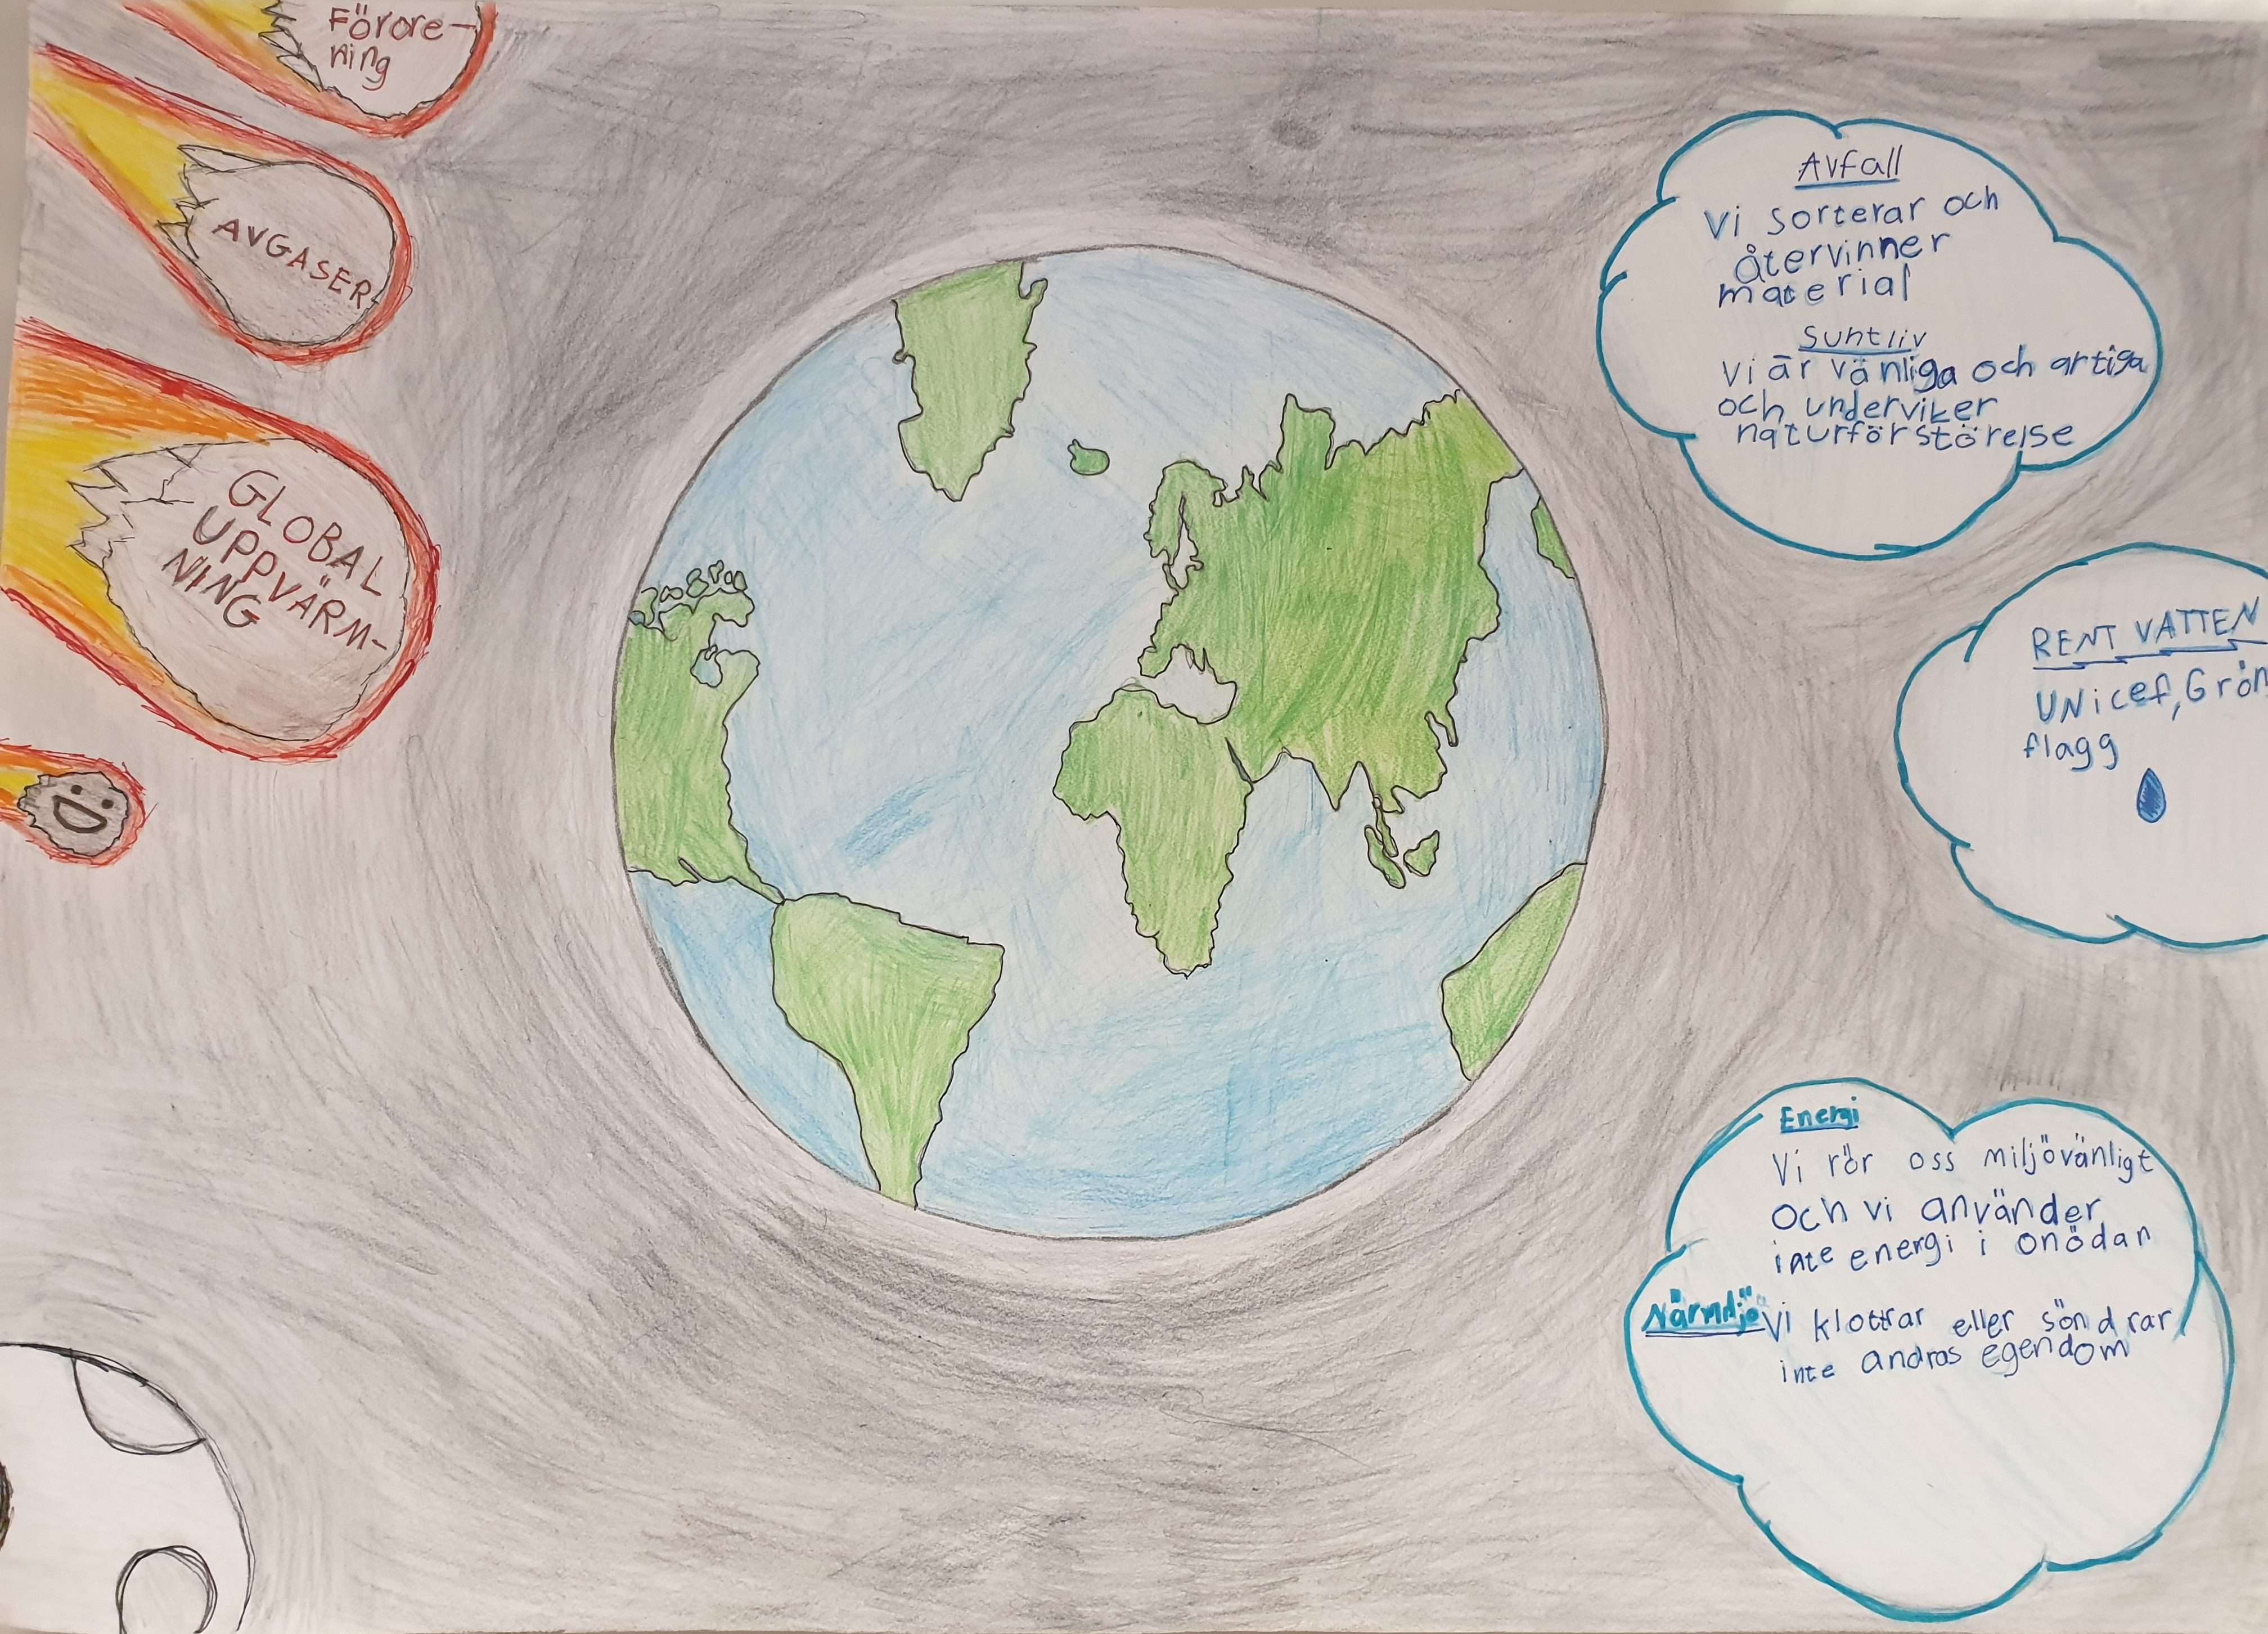 Förore-
ning
AVGASER
GLOBAL
UPPVÄRM-
NING
Avfall
Vi sorterar och
återvinner
material
Suntliv
Vi är vänliga och artiga
och underviker
naturförstörelse
RENT VATTEN
UNicef, Grön
flagg
Energi
Vi rör oss miljövänligt
och vi använder
inte energi i onödan
Närmiljö Vi klottrar eller söndrar
inte andras egendom